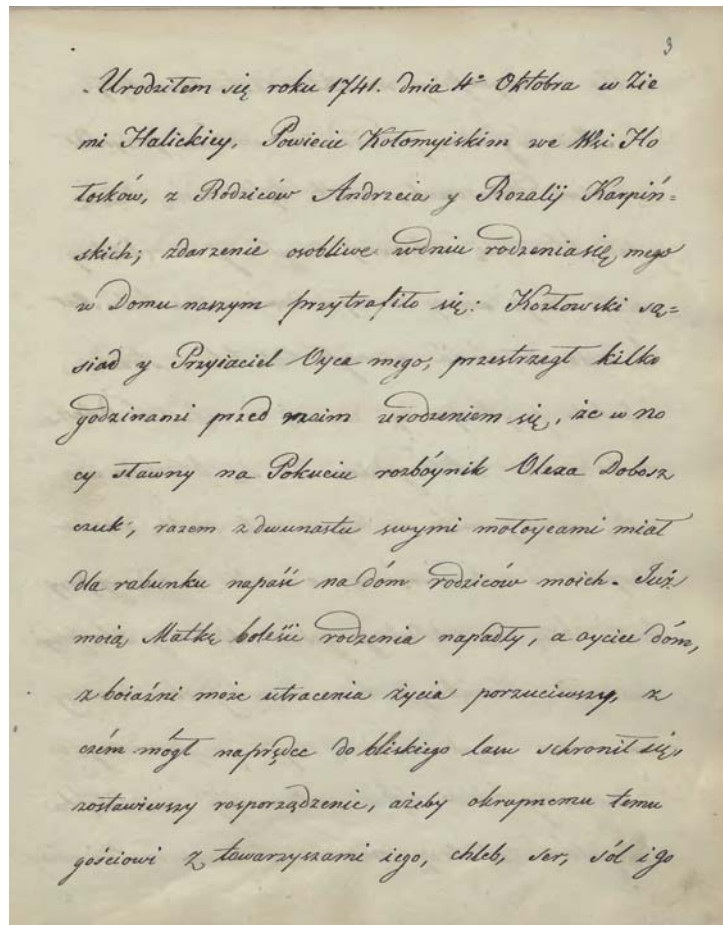 3
Urodziłem się roku 1741. dnia 4º Oktobra w Zie
mi Halickiey, Powiecie Kołomyiskim we Wsi Ho
łosków, z Rodziców Andrzeia y Rozalij Karpiń=
skich; zdarzenie osobliwe wdniu rodzeniasię mego
w Domu naszym przytrafiło się: Kozłowski są=
siad y Przyiaciel Oyca mego, przestrzegł kilko
godzinami przed moim urodzeniem się, że w no
cy sławny na Pokuciu rozbóynik Olexa Dobosz
czuk, razem z dwunastu swymi mołoycami miał
dla rabunku napaść na dóm rodziców moich. Już
moią Matkę boleści rodzenia napadły, a oyciec dóm,
z boiaźni może utracenia życia porzuciwszy, z
czém mógł naprędce do bliskiego lasu schronił się,
zostawiwszy rosporządzenie, ażeby okrupnemu temu
gościowi z towarzyszami iego, chleb, ser, sól i go